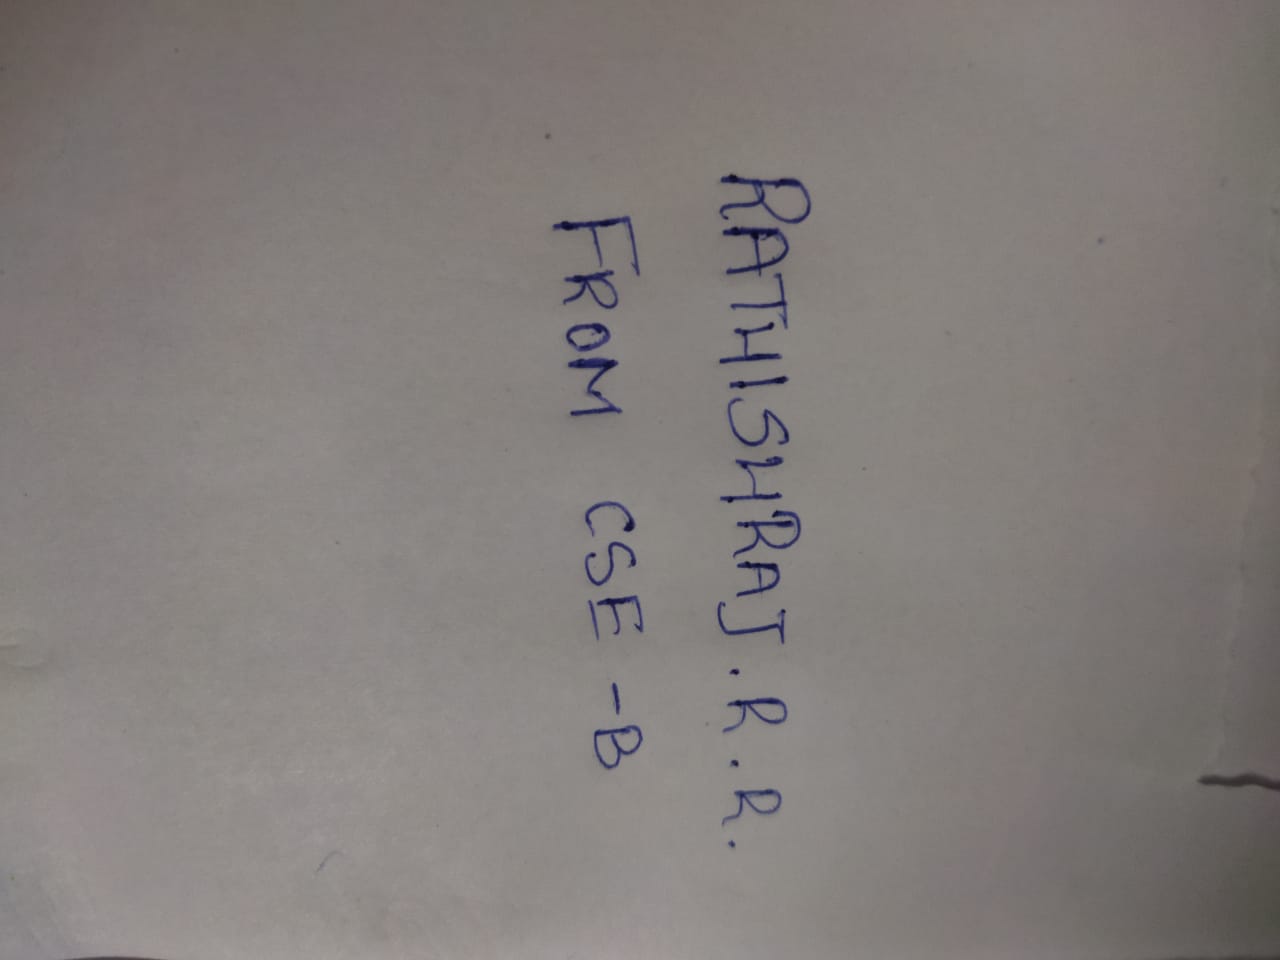 RATHISHRAJ.R.R.
FROM CSE-B